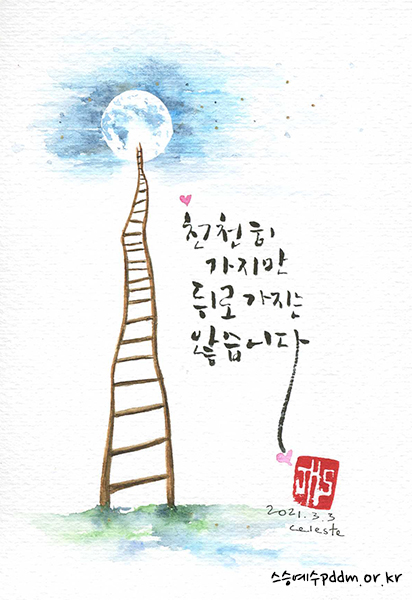 천천히
가지만
뒤로 가지는
않습니다
JHS
2021.3.3
celeste
스승예수pddm.or.kr